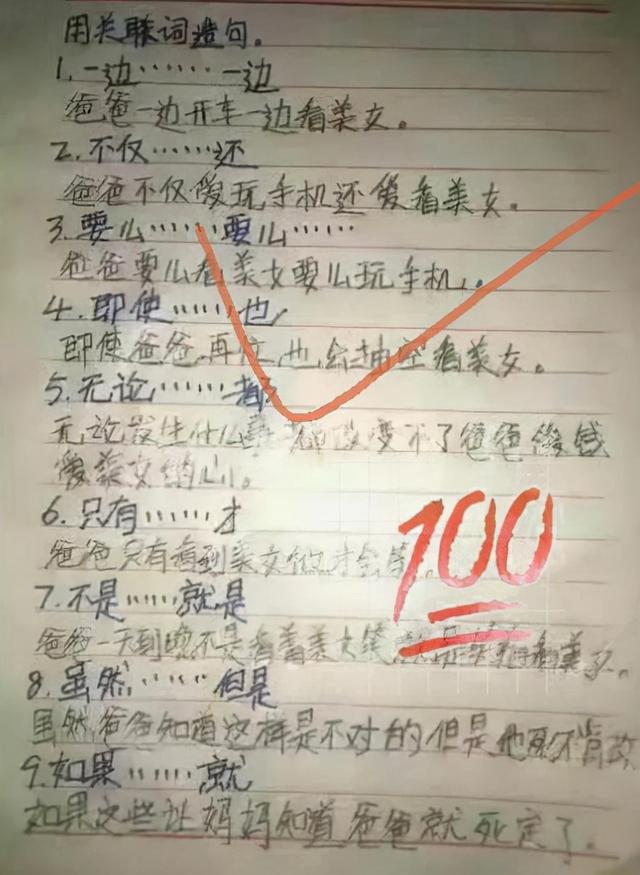 用关联词造句。
1.一边……一边
爸爸一边开车一边看美女。
2.不仅……还
爸爸不仅爱玩手机还爱看美女。
3.要么……要么……
爸爸要么看美女要么玩手机。
4.即使……也
即使爸爸再忙,也会抽空看美女。
5.无论……都
无论发生什么 都改变不了爸爸爱钱
爱美女的心。
6.只有……才
爸爸只有看到美女 才会笑。
100
7.不是……就是
爸爸一天到晚不是看着美女笑 就是 看美女。
8.虽然……但是
虽然爸爸知道这样是不对的但是他 不肯改
9.如果……就
如果这些让妈妈知道爸爸就死定了。